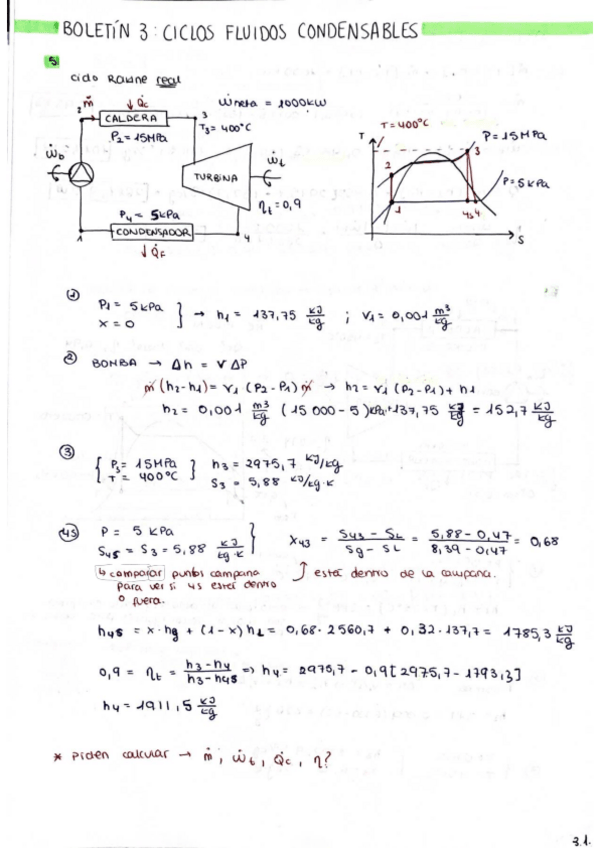 BOLETÍN 3: CICLOS FLUIDOS CONDENSABLES
5.
ciclo Rankine real
2 ṁ ↓ Q̇c 3
CALDERA
P2 = 15MPa
T3 = 400°C
Ẇneta = 1000kW
Ẇb
TURBINA
Ẇt
ηt = 0,9
P4 = 5kPa
CONDENSADOR
1 ↓ Q̇F 4
T = 400°C
T
P = 15MPa
P = 5kPa
2 3
1 4s 4
S
① P1 = 5kPa
x = 0 } → h1 = 137,75 kJ/kg ; v1 = 0,001 m³/kg
② BOMBA → Δh = v ΔP
ṁ (h2-h1) = v1 (P2-P1) ṁ → h2 = v1 (P2-P1) + h1
h2 = 0,001 m³/kg (15 000 - 5) kPa + 137,75 kJ/kg = 152,7 kJ/kg
③ { P3 = 15MPa } h3 = 2975,7 kJ/kg
T = 400°C S3 = 5,88 kJ/kg·K
④s P = 5 kPa
S4s = S3 = 5,88 kJ/kg·K } X43 = S43 - SL / Sg - SL = 5,88 - 0,47 / 8,39 - 0,47 = 0,68
↳ comparar puntos campana ↑ está dentro de la campana.
para ver si 4s está dentro
o fuera.
h4s = x · hg + (1-x) hL = 0,68 · 2560,7 + 0,32 · 137,7 = 1785,3 kJ/kg
0,9 = ηt = h3-h4 / h3-h4s => h4 = 2975,7 - 0,9[2975,7 - 1793,3]
h4 = 1911,5 kJ/kg
* Piden calcular → ṁ, Ẇt, Q̇c, η?
3.1.